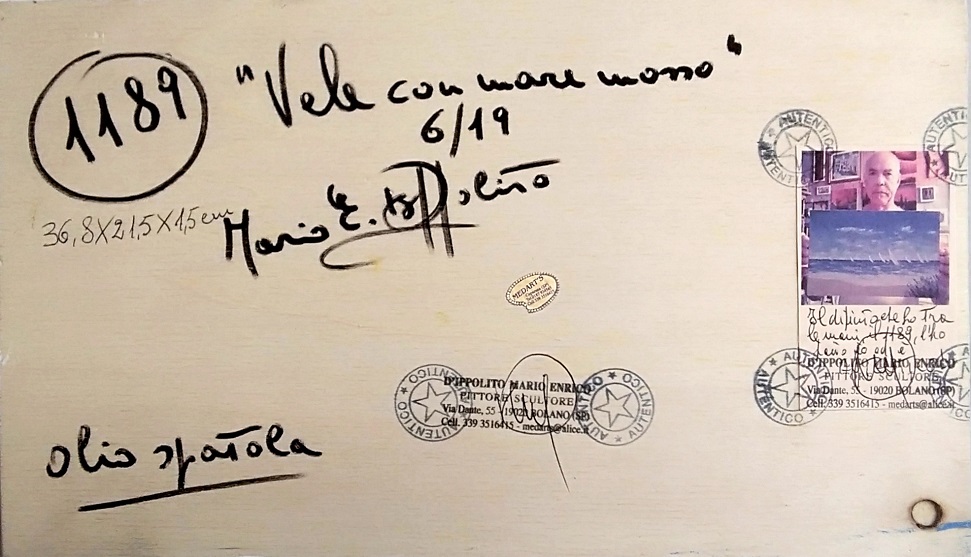 1189
"Vele con mare mosso"
6/19
36,8X21,5X1,5 cm
Mario E. D'Ippolito
AUTENTICO
AUTENTICO
MEDART'S
Il dipinto che ho tra
le mani, il 1189, l'ho
fatto io ed è
D'IPPOLITO MARIO ENRICO
PITTORE SCULTORE
Via Dante, 55 - 19020 BOLANO (SP)
Cell. 339 3516415 - medarts@alice.it
AUTENTICO
AUTENTICO
AUTENTICO
D'IPPOLITO MARIO ENRICO
PITTORE SCULTORE
Via Dante, 55 - 19020 BOLANO (SP)
Cell. 339 3516415 - medarts@alice.it
AUTENTICO
olio spatola